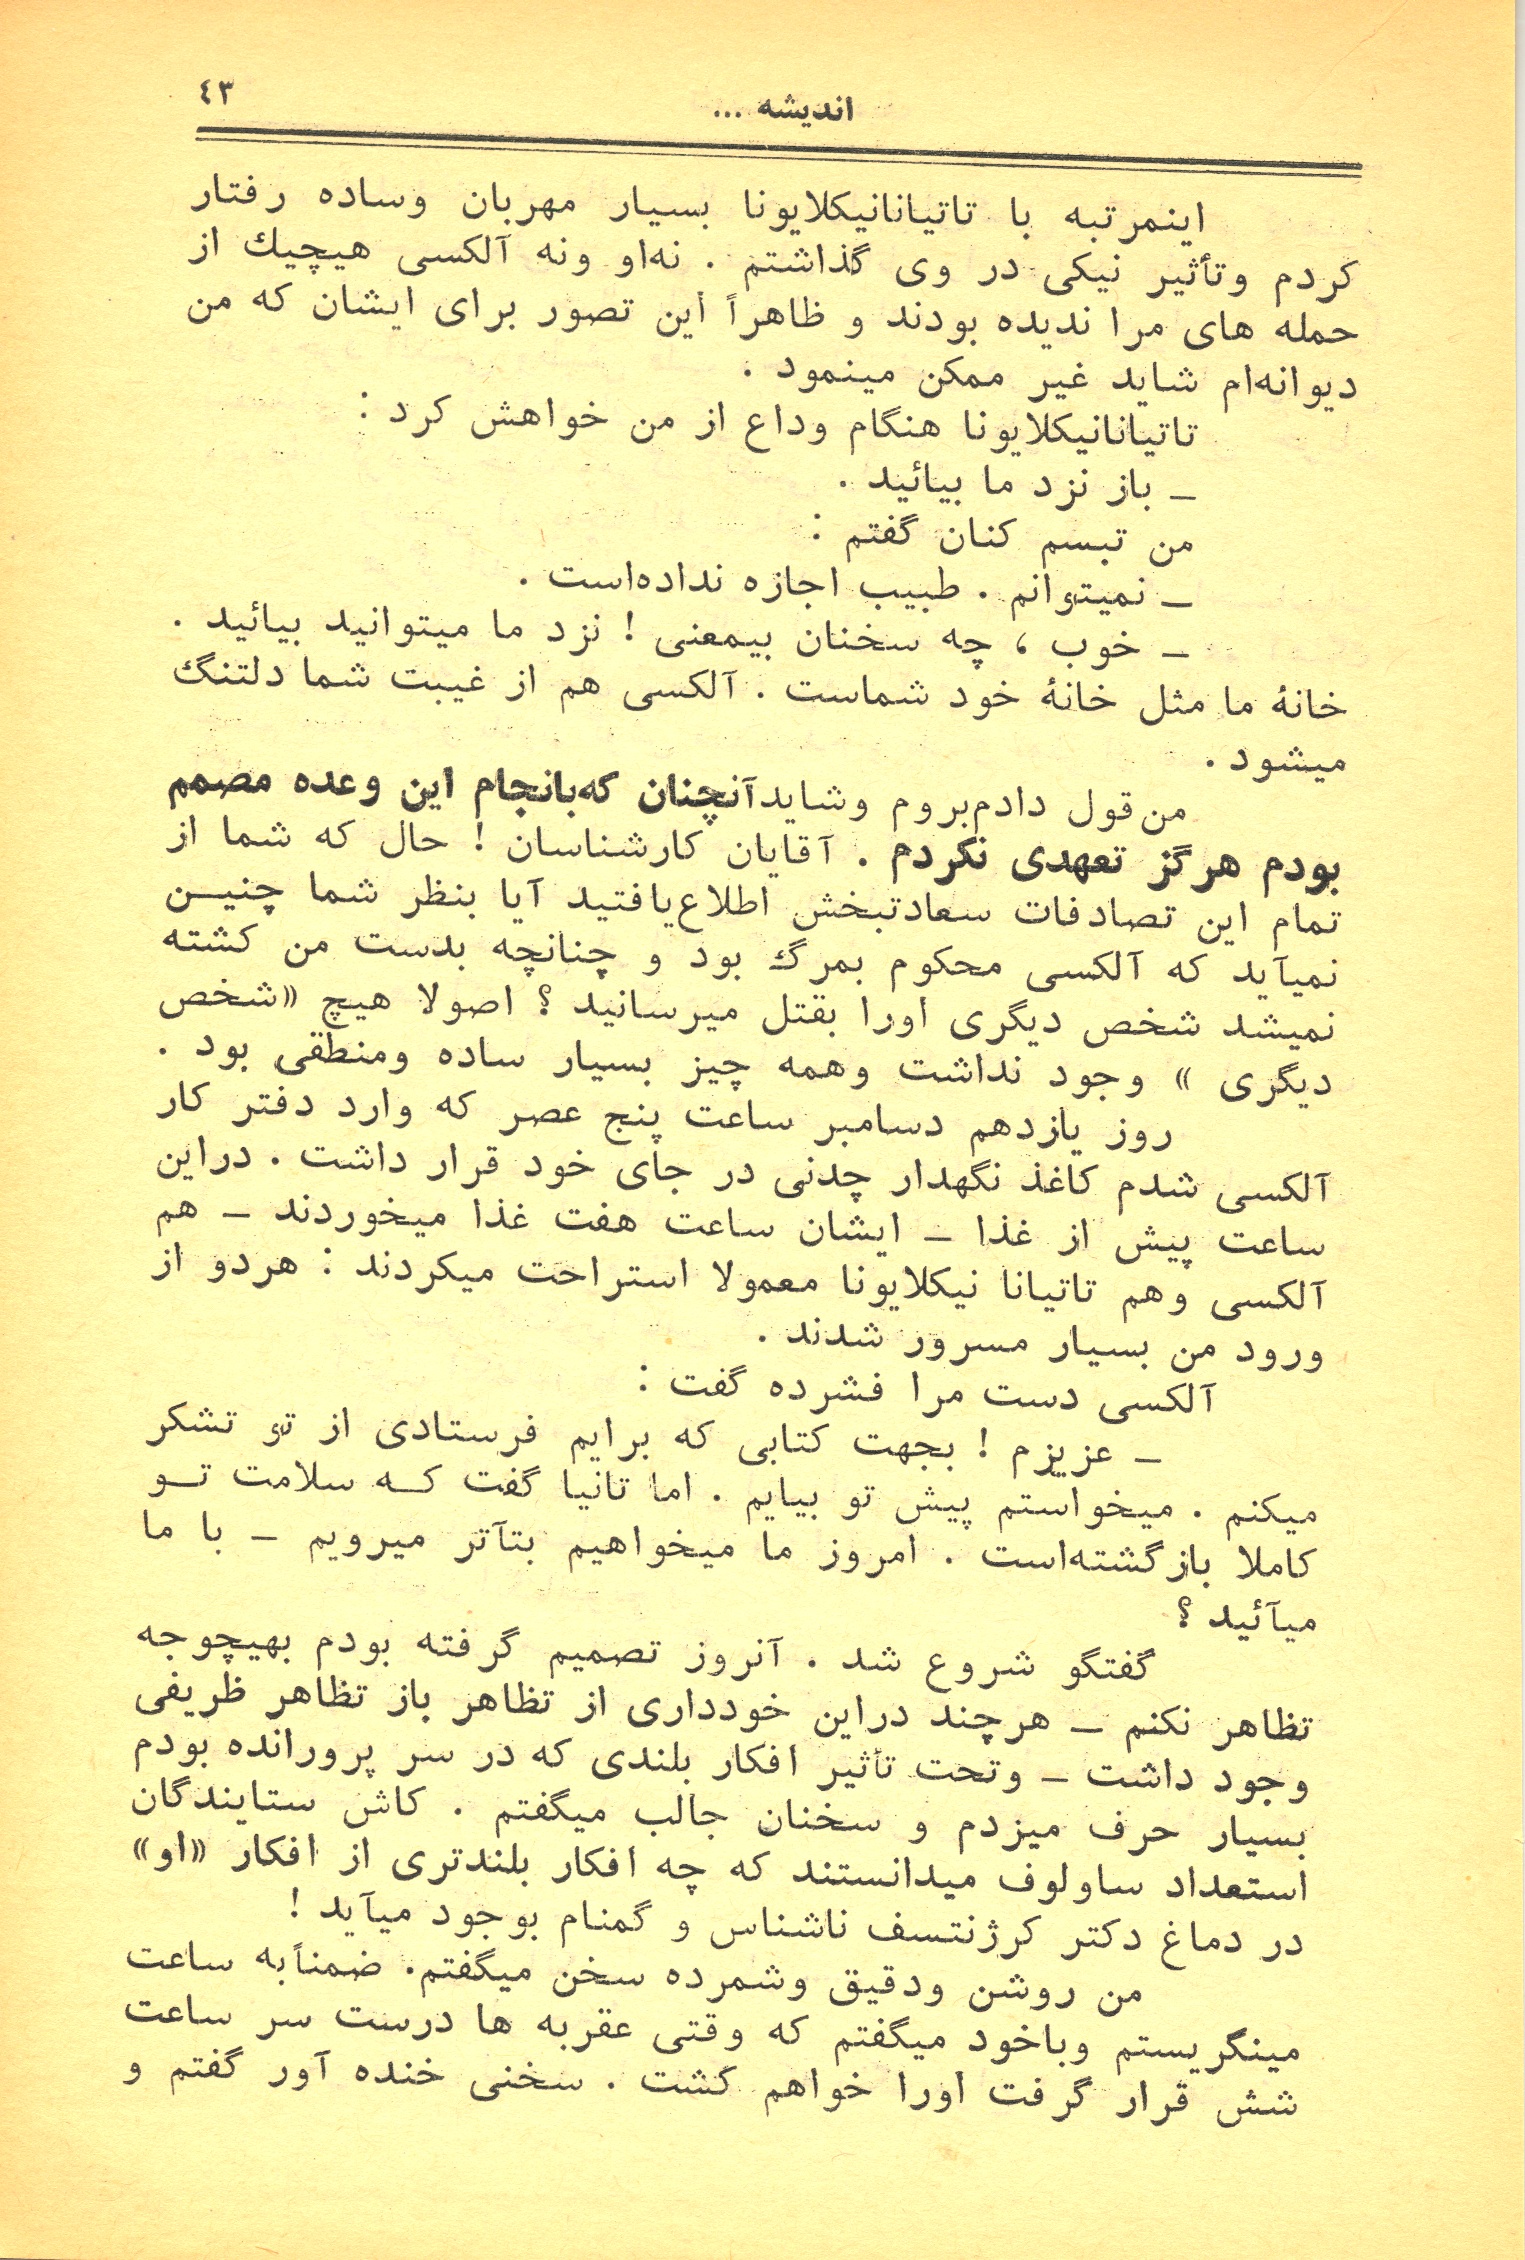 اندیشه ...
٤٣
اینمرتبه با تاتیانانیکلایونا بسیار مهربان وساده رفتار
کردم وتأثیر نیکی در وی گذاشتم . نه‌او ونه آلکسی هیچیك از
حمله های مرا ندیده بودند و ظاهراً این تصور برای ایشان که من
دیوانه‌ام شاید غیر ممکن مینمود .
تاتیانانیکلایونا هنگام وداع از من خواهش کرد :
ـ باز نزد ما بیائید .
من تبسم کنان گفتم :
ـ نمیتوانم . طبیب اجازه نداده‌است .
ـ خوب ، چه سخنان بیمعنی ! نزد ما میتوانید بیائید .
خانهٔ ما مثل خانهٔ خود شماست . آلکسی هم از غیبت شما دلتنگ
میشود .
من قول دادم‌بروم وشایدآنچنان که‌بانجام این وعده مصمم
بودم هرگز تعهدی نکردم . آقایان کارشناسان ! حال که شما از
تمام این تصادفات سعادتبخش اطلاع‌یافتید آیا بنظر شما چنیـن
نمیآید که آلکسی محکوم بمرگ بود و چنانچه بدست من کشته
نمیشد شخص دیگری اورا بقتل میرسانید ؟ اصولا هیچ «شخص
دیگری » وجود نداشت وهمه چیز بسیار ساده ومنطقی بود .
روز یازدهم دسامبر ساعت پنج عصر که وارد دفتر کار
آلکسی شدم کاغذ نگهدار چدنی در جای خود قرار داشت . دراین
ساعت پیش از غذا ـ ایشان ساعت هفت غذا میخوردند ـ هم
آلکسی وهم تاتیانا نیکلایونا معمولا استراحت میکردند : هردو از
ورود من بسیار مسرور شدند .
آلکسی دست مرا فشرده گفت :
ـ عزیزم ! بجهت کتابی که برایم فرستادی از تو تشکر
میکنم . میخواستم پیش تو بیایم . اما تانیا گفت کـه سلامت تـو
کاملا بازگشته‌است . امروز ما میخواهیم بتآتر میرویم ـ با ما
میآئید ؟
گفتگو شروع شد . آنروز تصمیم گرفته بودم بهیچوجه
تظاهر نکنم ـ هرچند دراین خودداری از تظاهر باز تظاهر ظریفی
وجود داشت ـ وتحت تأثیر افکار بلندی که در سر پرورانده بودم
بسیار حرف میزدم و سخنان جالب میگفتم . کاش ستایندگان
استعداد ساولوف میدانستند که چه افکار بلندتری از افکار «او»
در دماغ دکتر کرژنتسف ناشناس و گمنام بوجود میآید !
من روشن ودقیق وشمرده سخن میگفتم. ضمناً به ساعت
مینگریستم وباخود میگفتم که وقتی عقربه ها درست سر ساعت
شش قرار گرفت اورا خواهم کشت . سخنی خنده آور گفتم و